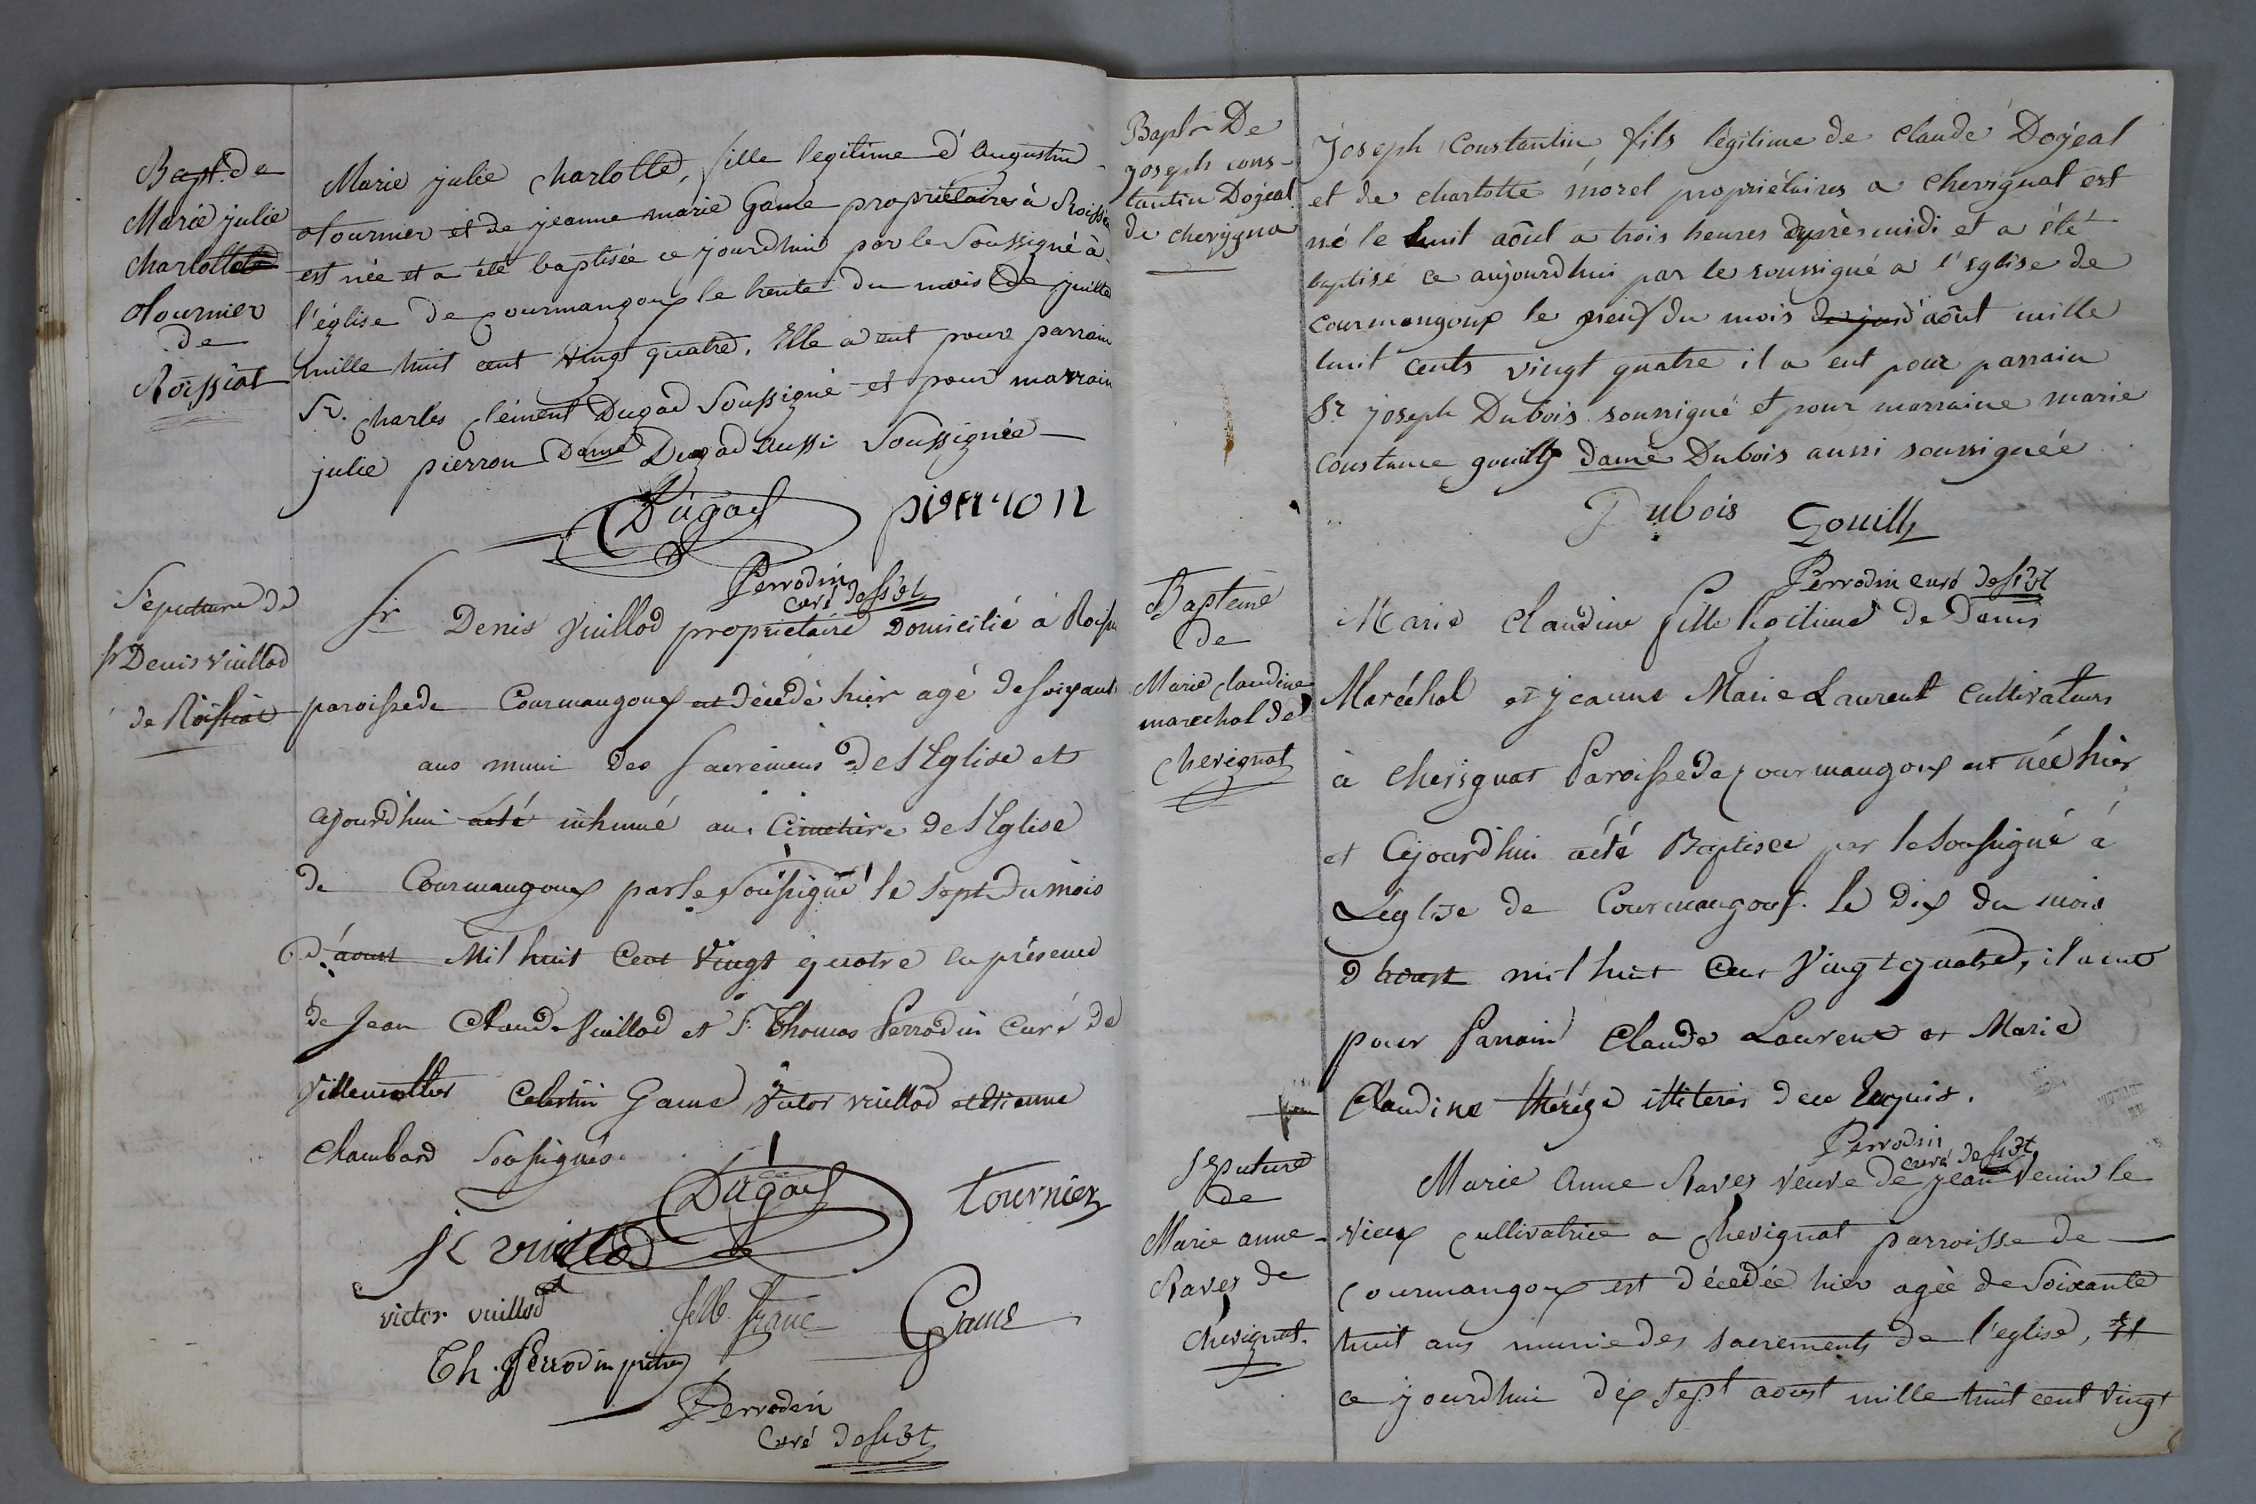 Bapt. de
Marie julie
charlotte
tournier
de
Roissiat
Marie julie charlotte, fille legitime d'augustin
tournier et de jeanne marie Game propriétaires à Roissia
est née et a été baptisée ce jourdhui par le Soussigné à
l'église de Courmangoux le trente du mois de juille
mille huit cent vingt quatre. Elle a eut pour parrain
Sr. Charles Clément Dugad Soussigné et pour marrain
julie pierron Dame Dugad aussi Soussignée
Dugad pierron
Perrodin
curé dessvt
Sépulture de
Sr Denis Vuillod
de Roissiat
Sr Denis Vuillod propriétaire Domicilié à Roissi
paroisse de Courmangoux est décédé hier agé de soixante
ans muni des sacremens de l'Eglise et
cejourd'hui a été inhumé au Cimetière de l'Eglise
de Courmangoux par le soussigné le sept du mois
d'aoust Mil huit Cent Vingt quatre en présence
de Jean Claude Vuillod et Sr. Thomas Perrodin Curé de
Villemotier Celestin Game Victor vuillod etienne
Chambard Soussignés.
Dugad tournier
J C vuillod
victor vuillod Game
Th. Perrodin prêtre
Perrodin
Curé dessvt
Bapt. De
joseph cons-
tantin Dojeal
de chevigna
Joseph Constantin fils légitime de claude Dojeal
et de charlotte morel propriétaires a chevignat est
né le huit aôut a trois heures après midi et a été
baptisé ce aujourdhui par le soussigné a l'eglise de
courmangoux le neuf du mois d'aôut mille
huit cents vingt quatre il a eut pour parrain
Sr. joseph Dubois soussigné et pour marraine marie
constance gouilly dame Dubois aussi soussignée
Dubois Gouilly
Perrodin curé dessvt
Bapteme
de
Marie claudine
marechal de
Chevignat
Marie Claudine fille legitime de Denis
Maréchal et jeanne Marie Laurent cultivateurs
à chevignat Paroisse de Courmangoux est née hier
et Cejourd'hui a été Baptisée par le soussigné à
L'eglise de Courmangoux le dix du mois
d'aoust mil huit Cent Vingt quatre, il a eut
pour Parrain Claude Laurent et Marie
Claudine thérése illiterés de ce Requis.
Perrodin
curé dessvt
Sépulture
de
Marie anne
Ravez de
Chevignat.
Marie Anne Ravez veuve de jean venin le
vieux cultivatrice a Chevignat parroisse de
Courmangoux est décedée hier agée de Soixante
huit ans munie des sacrements de l'eglise, Et
ce jourdhui dix sept aoust mille huit cent vingt